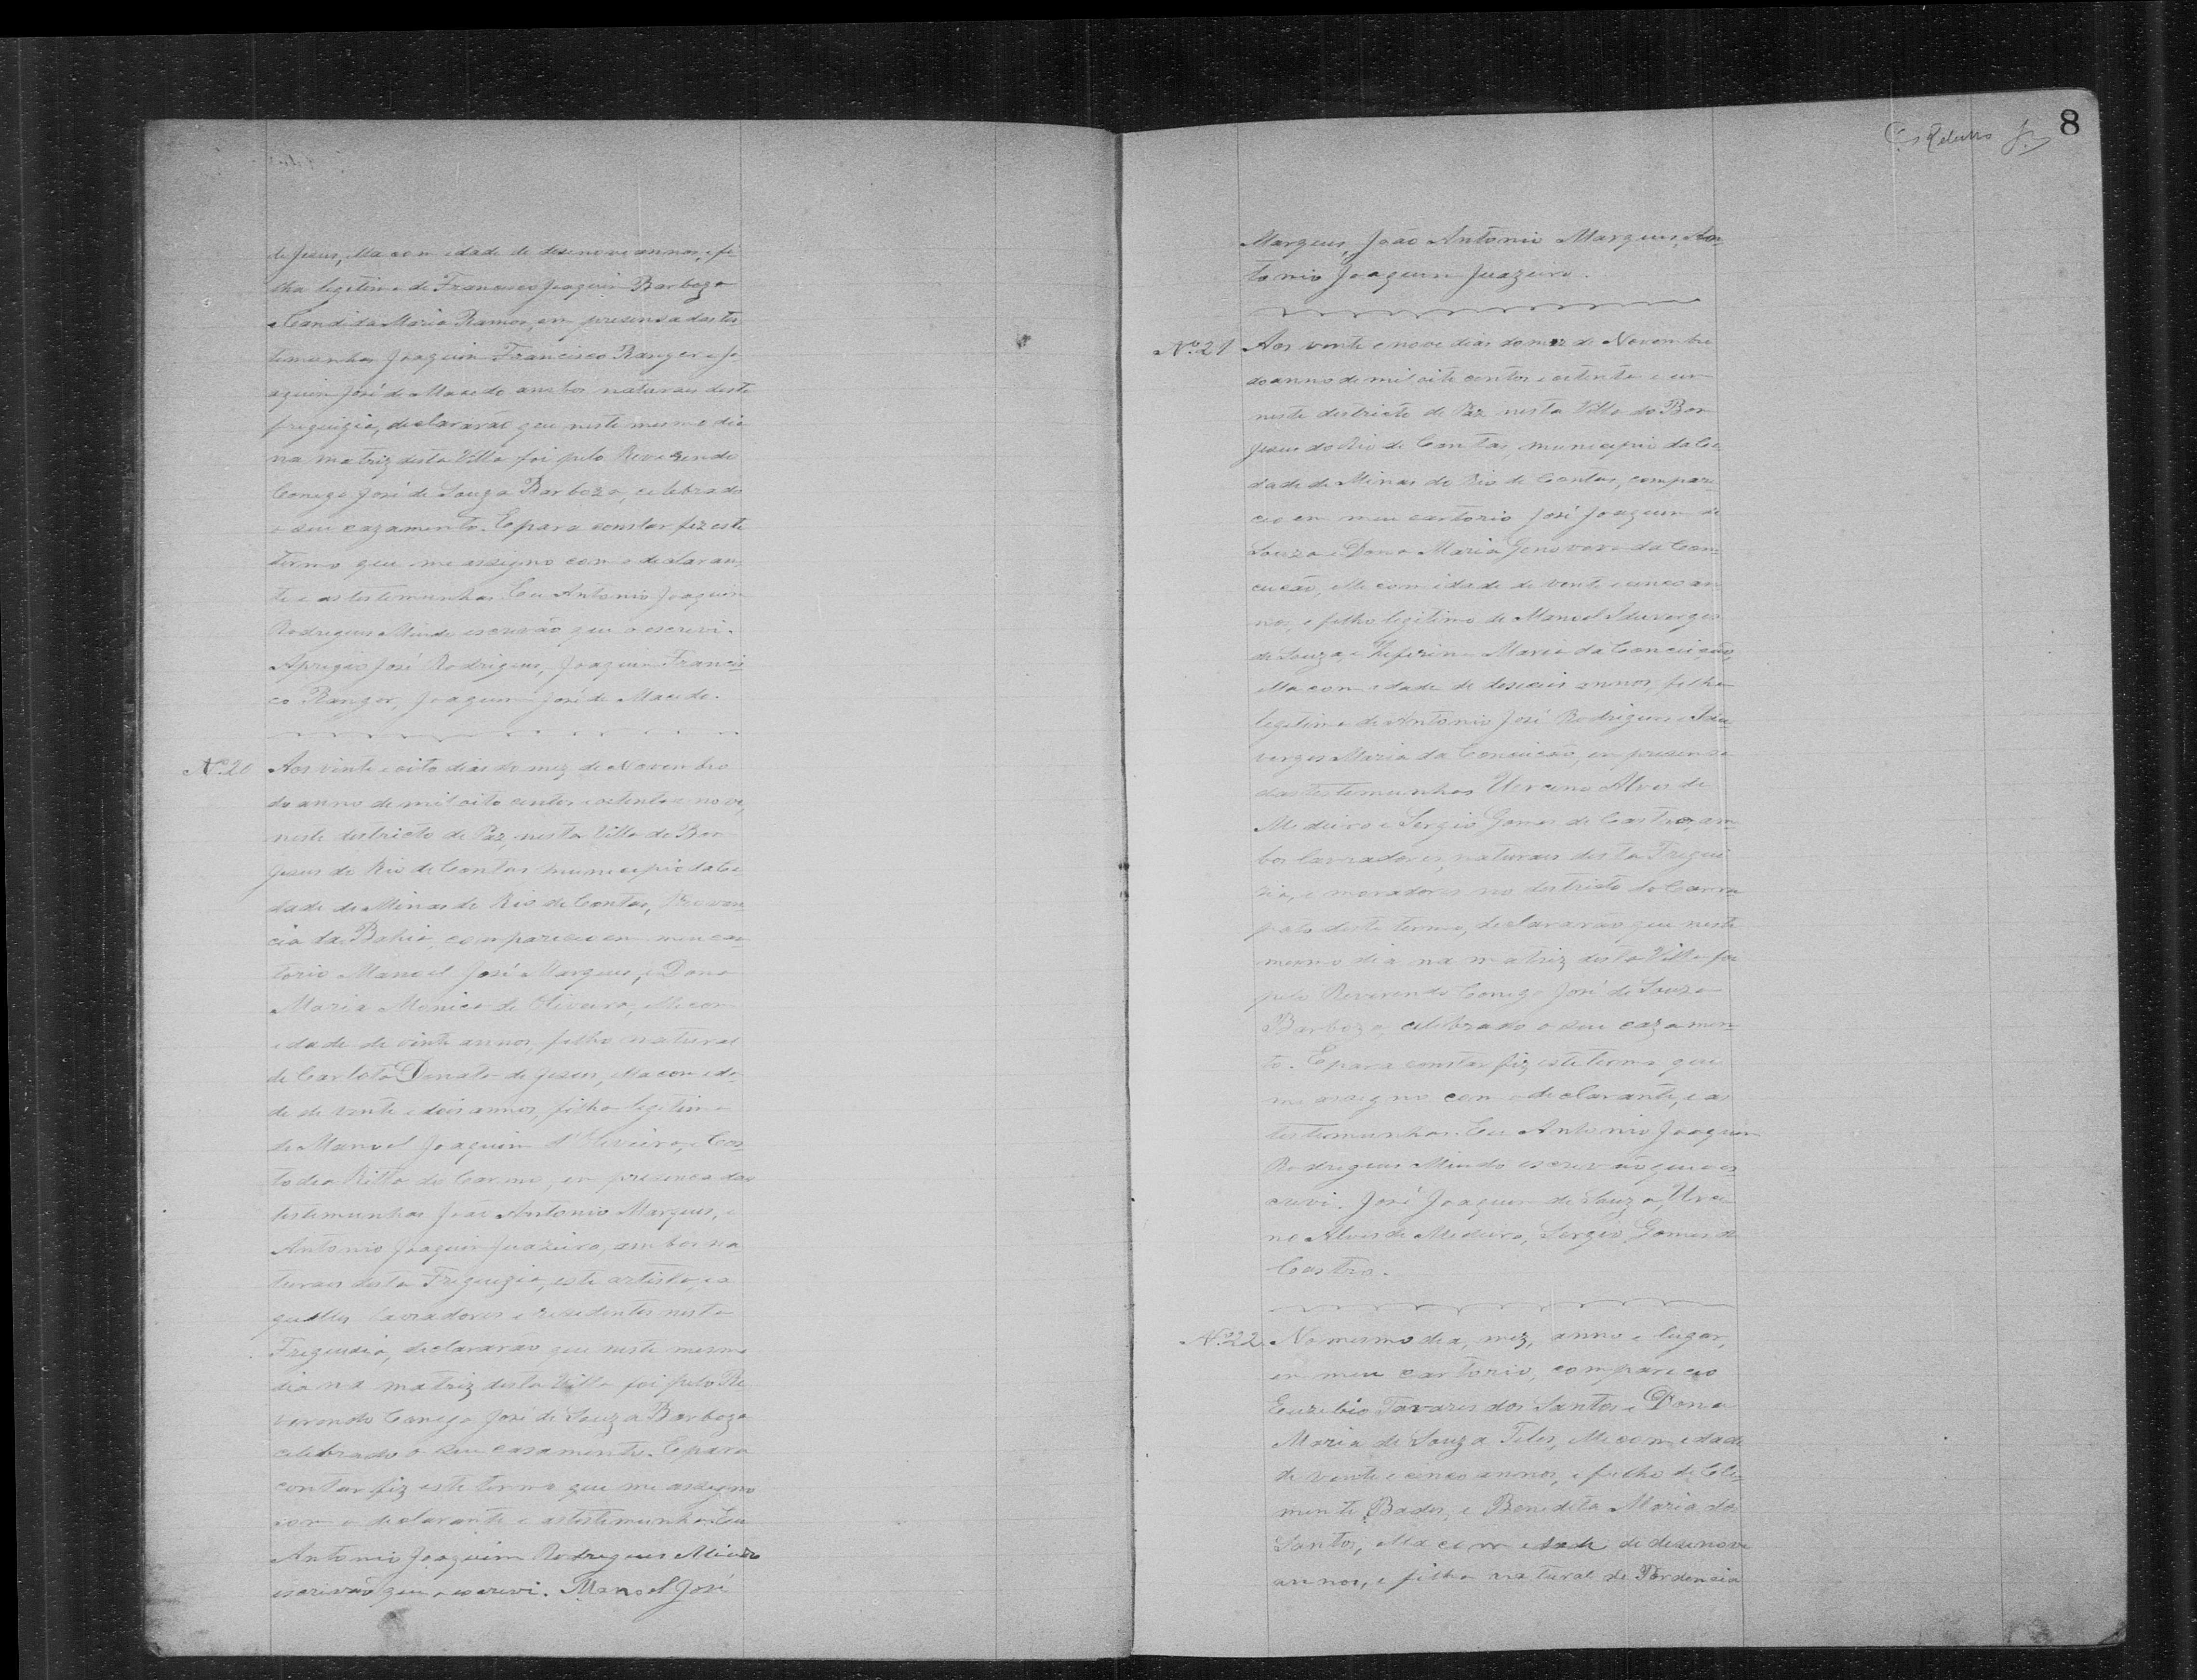 de Jesus, ella com idade de desenove annos, e fi
lha legitima de Francisco Joaquim Barboza
e Candida Maria Ramos, em presensa das tes
temunhas Joaquim Francisco Ranger e Jo
aquim José de Macedo ambos naturaes desta
freguizia, declararão que neste mesmo dia
na matriz desta Villa foi pelo Reverendo
Conego José de Souza Barboza, celebrado
o seu cazamento. E para constar fiz este
termo que me assigno com o declaran
te e as testemunhas Eu Antonio Joaquim
Rodrigues Mindo escrivão que o escrevi.
Aprigio José Rodrigues, Joaquim Francis
co Ranger, Joaquim José de Macedo.
Nº 20 Aos vinte e oito dias do mez de Novembro
do anno de mil oito centos e oitenta e nove,
neste destricto de Paz, nesta Villa do Bom
Jesus do Rio de Contas municipio da Ci
dade de Minas do Rio de Contas, Provin
cia da Bahia, compareceu em meu car
torio Manoel José Marques, e Dona
Maria Monica de Oliveira, elle com
idade de vinte annos, filho natural
de Carlota Donata de Jesus, ella com ida
de de vinte e dois annos, filha legitima
de Manoel Joaquim d'Oliveira, e Cus
todia Ritta do Carmo, em presenca das
testemunhas João Antonio Marques, e
Antonio Joaquim Juazeiro, ambos na
turaes desta Freguizia, este artista, e a
quelles lavradores e residentes nesta
Freguizia, declararão que neste mesmo
dia na matriz desta Villa foi pelo Re
verendo Conego José de Souza Barboza
celebrado o seu casamento. E para
contar fiz este termo que me assigno
com o declarante e as testemunhas Eu
Antonio Joaquim Rodrigues Mindo
escrivão que o escrevi. Manoel José
8
Marques, João Antonio Marques, An
tonio Joaquim Juazeiro.
Nº 21 Aos vinte e nove dias do mez de Novembro
do anno de mil oito centos e oitenta e
neste destricto de Paz nesta Villa do Bom
Jesus do Rio de Contas, municipio da Ci
dade de Minas do Rio de Contas, compare
ceo em meu cartorio José Joaquim de
Souza e Dona Maria Genoveva da Con
ceicão, elle com idade de vinte e cinco an
nos, e filho legitimo de Manoel
de Souza, e Zeferina Maria da Conceicão,
ella com idade de deseceis annos, filha
legitima de Antonio José Rodrigues e
Maria da Conceicão, em presensa
das testemunhas Urcino Alves de
Medeiro e Sergio Gomes de Castro, am
bos lavradores, naturaes desta Fregui
zia, e moradores no destricto do Carra
pato deste termo, declararão que neste
mesmo dia na matriz desta Villa foi
pelo Reverendo Conego José de Souza
Barboza, celebrado o seu cazamen
to. E para constar fiz este termo que
me assigno com o declarante, e as
testemunhas. Eu Antonio Joaquim
Rodrigues Mindo escrivão que o es
crevi. José Joaquim de Souza, Urci
no Alves de Medeiro, Sergio Gomes de
Castro.
Nº 22 No mesmo dia, mez, anno e lugar,
em meu cartorio, compareceo
Euzebio Tavares dos Santos e Dona
Maria de Souza Teles, elle com idade
de vinte e cinco annos, e filho de Cle
mente Bades, e Benedita Maria dos
Santos, ella com idade de desenove
annos, e filha natural de